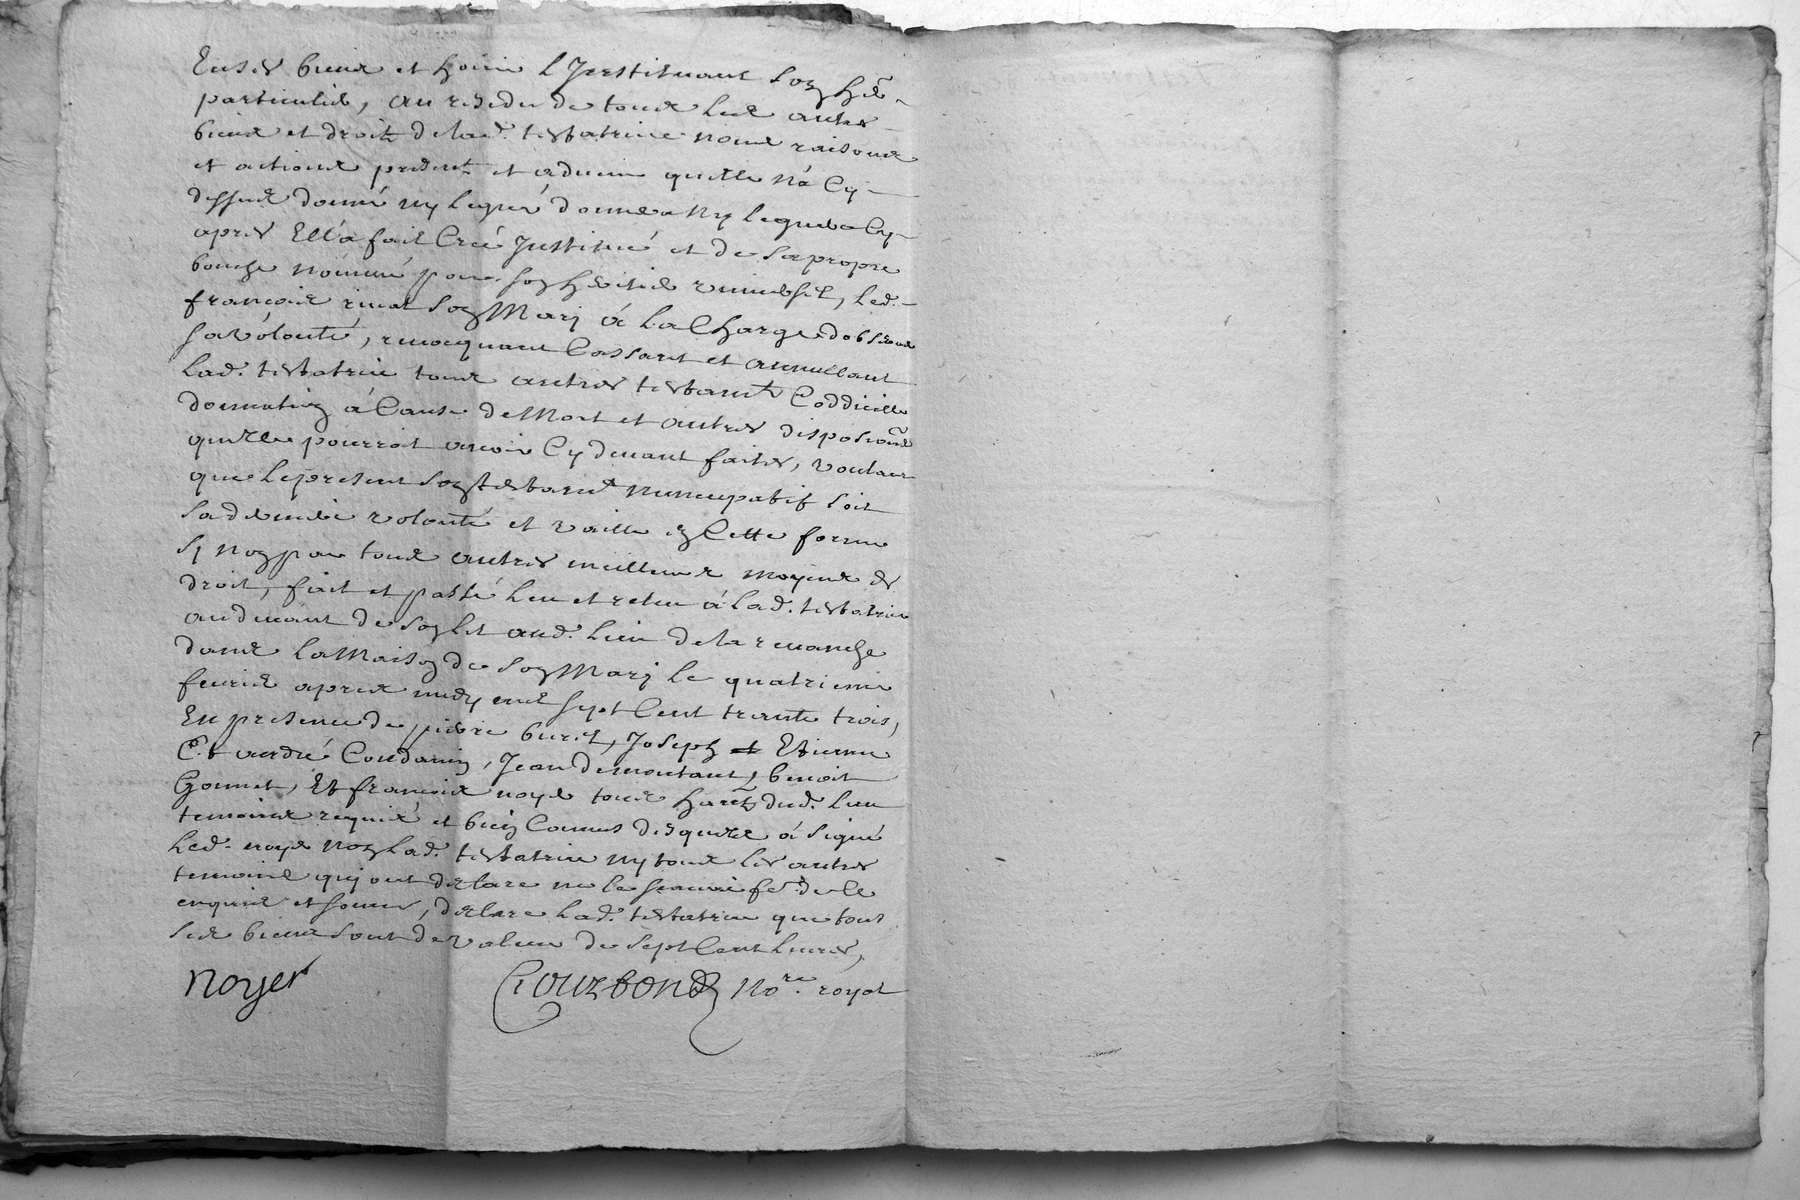 En ses biens et hoirie L'Jnstituant son her
particulier, au residu de tous les autres
biens et droits de lad. testatrice noms raisons
et actions presents et aduenir quelle n'a Cy
dessus donné ny legué donnera ny leguera Cy
apres Ell'a fait Créé Jnstitué et de sa propre
bouche nommé pour son heritier vniuersel, led.
françois riuat son Mary à La Charge d'obseruer
sa volonté, reuoquant Cassant et annullant
Lad. testatrice tous autres testamts Coddicille
donnation à Cause de Mort et autres disposions
quelle pourroit auoir Cy deuant faites, voulant
que le present son testamt nuncupatif soit
sa derniere volonté et vaille en Cette forme
sy non par tous autres meilleurs moyens de
droit, fait et passé leu et releu à Lad. testatrice
au deuant de son lit aud. lieu de la reuanche
dans La Maison de son Mary le quatrieme
feurier apres midy mil sept Cent trante trois,
En presence de pierre buret, Joseph Etienne
Et andré Condamin, Jean demontant, benoit
Gonnet, Et françois noyer tous habts dud. lieu
temoins requis et bien Connus desquels à signé
Led. noyer non Lad. testatrice ny tous les autres
temoins qui ont declaré ne le scauoir fe de Ce
enquis et sommés, declare Lad. testatrice que tous
ses biens sont de valeur de sept Cent liures,
noyer Gourbond nore. royal